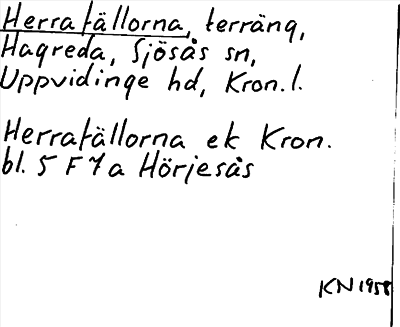 Herrafällorna, terräng,
Hagreda, Sjösås sn,
Uppvidinge hd, Kron. l.
Herrafällorna ek Kron.
bl. 5 F 7 a Hörjesås
KN 1958